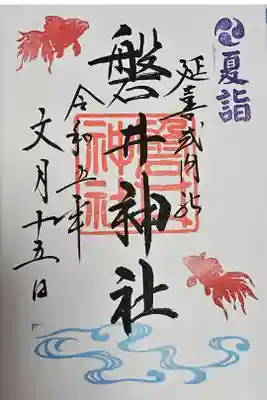 夏詣
延喜式内社
磐井神社
磐井神社
令和五年
文月十五日